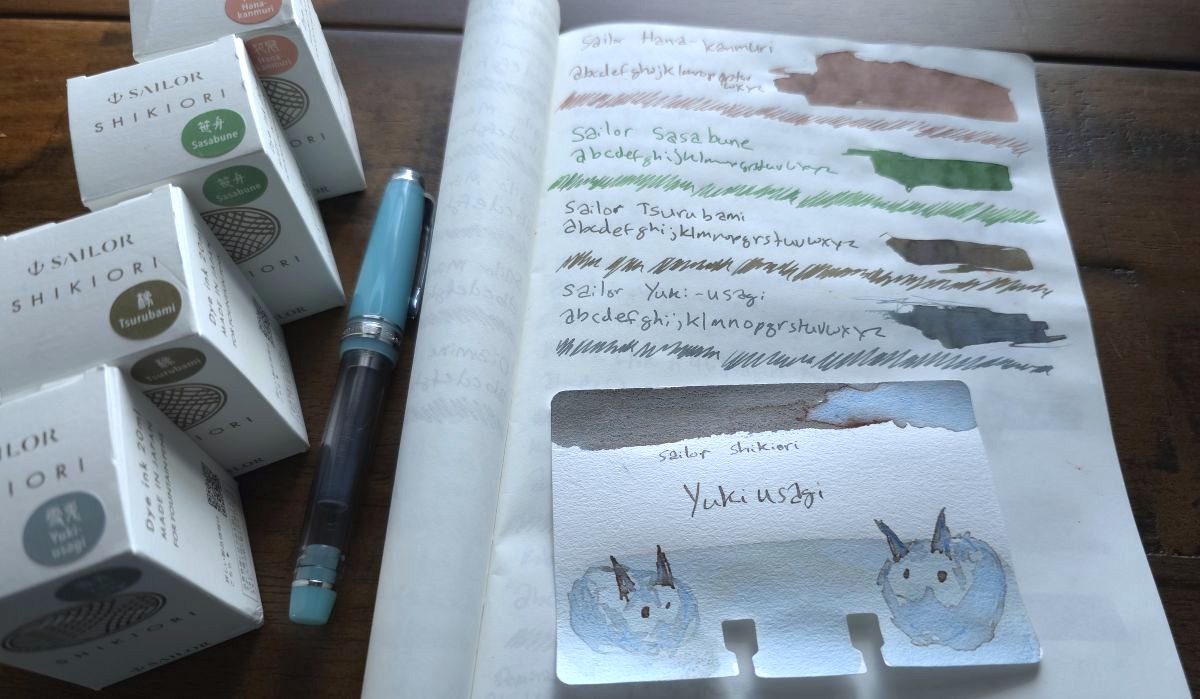 Hana-
kanmuri
Hana
kanmuri
SAILOR
SHIKIORI
笹舟
Sasabune
笹舟
Sasabune
SAILOR
SHIKIORI
橡
Tsurubami
橡
Tsurubami
Dye ink 20ml
MADE IN JAPAN
FOR FOUNTAIN PEN
SAILOR
Yuki-
usagi
SHIKIORI
SAILOR
Sailor Hana-kanmuri
abcdefghijklmnopqrstuv
wxyz
Sailor Sasabune
abcdefghijklmnopqrstuvwxyz
Sailor Tsurubami
abcdefghijklmnopqrstuvwxyz
Sailor Yuki-usagi
abcdefghijklmnopqrstuvwxyz
sailor shikiori
Yuki usagi